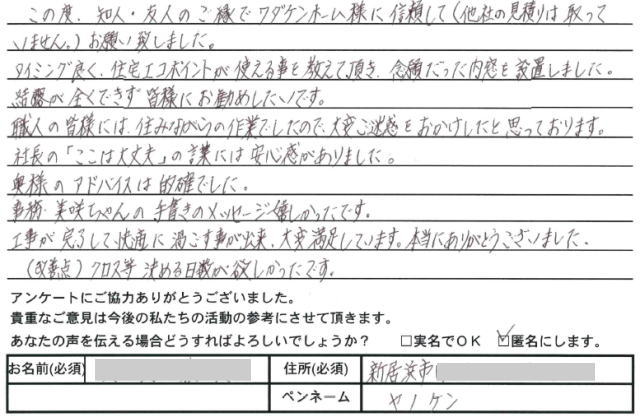 この度、知人・友人のご縁でワダケンホーム様に信頼して(他社の見積りは取って
いません。)お願い致しました。
タイミング良く、住宅エコポイントが使える事を教えて頂き、念願だった内窓を設置しました。
結露が全くできず皆様にお勧めしたいです。
職人の皆様には、住みながらの作業でしたので、大変ご迷惑をおかけしたと思っております。
社長の「ここは大丈夫」の言葉には安心感がありました。
奥様のアドバイスは的確でした。
事務・美咲ちゃんの手書きのメッセージ嬉しかったです。
工事が完了して、快適に過ごす事が出来、大変満足しています。本当にありがとうございました。
(改善点)クロス等決める日数が欲しかったです。
アンケートにご協力ありがとうございました。
貴重なご意見は今後の私たちの活動の参考にさせて頂きます。
あなたの声を伝える場合どうすればよろしいでしょうか? □実名でOK ☑匿名にします。
お名前(必須) 住所(必須) 新居浜市
ペンネーム ヤノケン